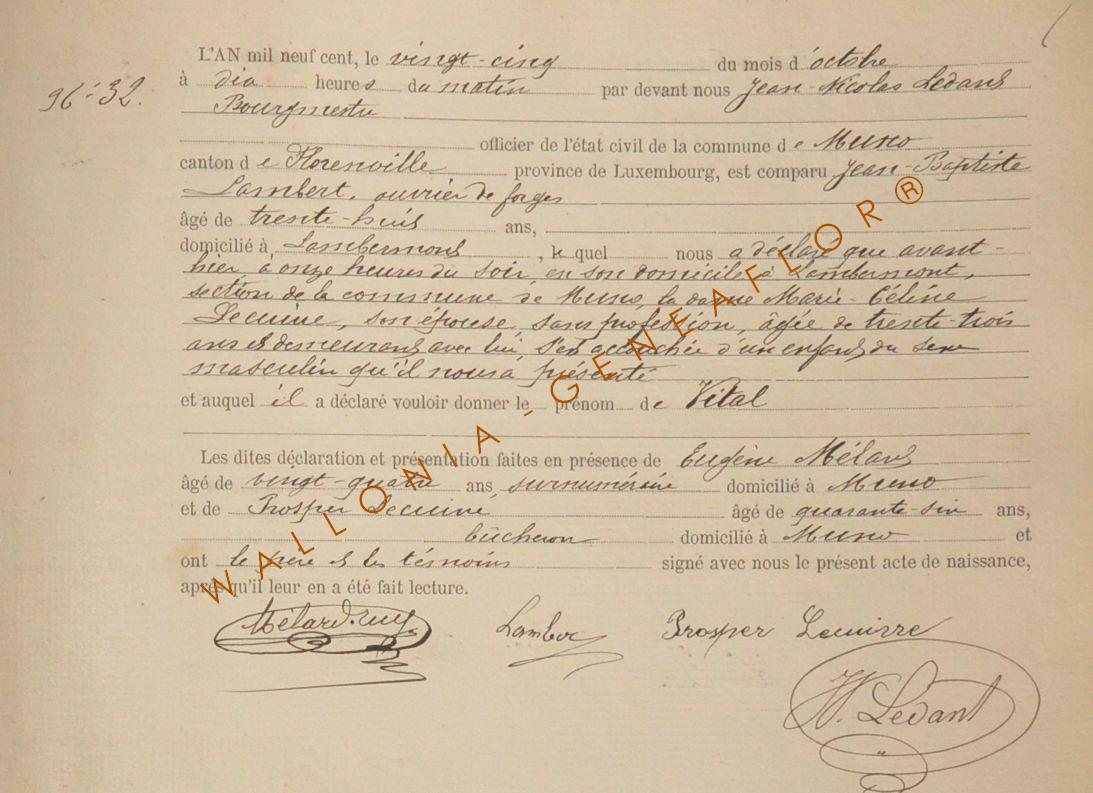 96-32.
L'AN mil neuf cent, le vingt-cinq du mois d'octobre
à dix heures du matin par devant nous Jean-Nicolas Ledant
Bourgmestre
officier de l'état civil de la commune de Muno
canton de Florenville province de Luxembourg, est comparu Jean-Baptiste
Lambert, ouvrier de forges
âgé de trente-huit ans,
domicilié à Lambermont, lequel nous a déclaré que avant-
hier, à onze heures du soir, en son domicile à Lambermont,
section de la commune de Muno, la dame Marie-Céline
Lecuivre, son épouse, sans profession, âgée de trente-trois
ans et demeurant avec lui, s'est accouchée d'un enfant du sexe
masculin qu'il nous a présenté
et auquel il a déclaré vouloir donner le prénom de Vital
Les dites déclaration et présentation faites en présence de Eugène Mélard
âgé de vingt-quatre ans, surnuméraire domicilié à Muno
et de Prosper Lecuivre âgé de quarante-six ans,
bûcheron domicilié à Muno et
ont le père et les témoins signé avec nous le présent acte de naissance,
après qu'il leur en a été fait lecture.
Mélard Lambert Prosper Lecuivre
N. Ledant
WALLONIA - GENEAFLOR®